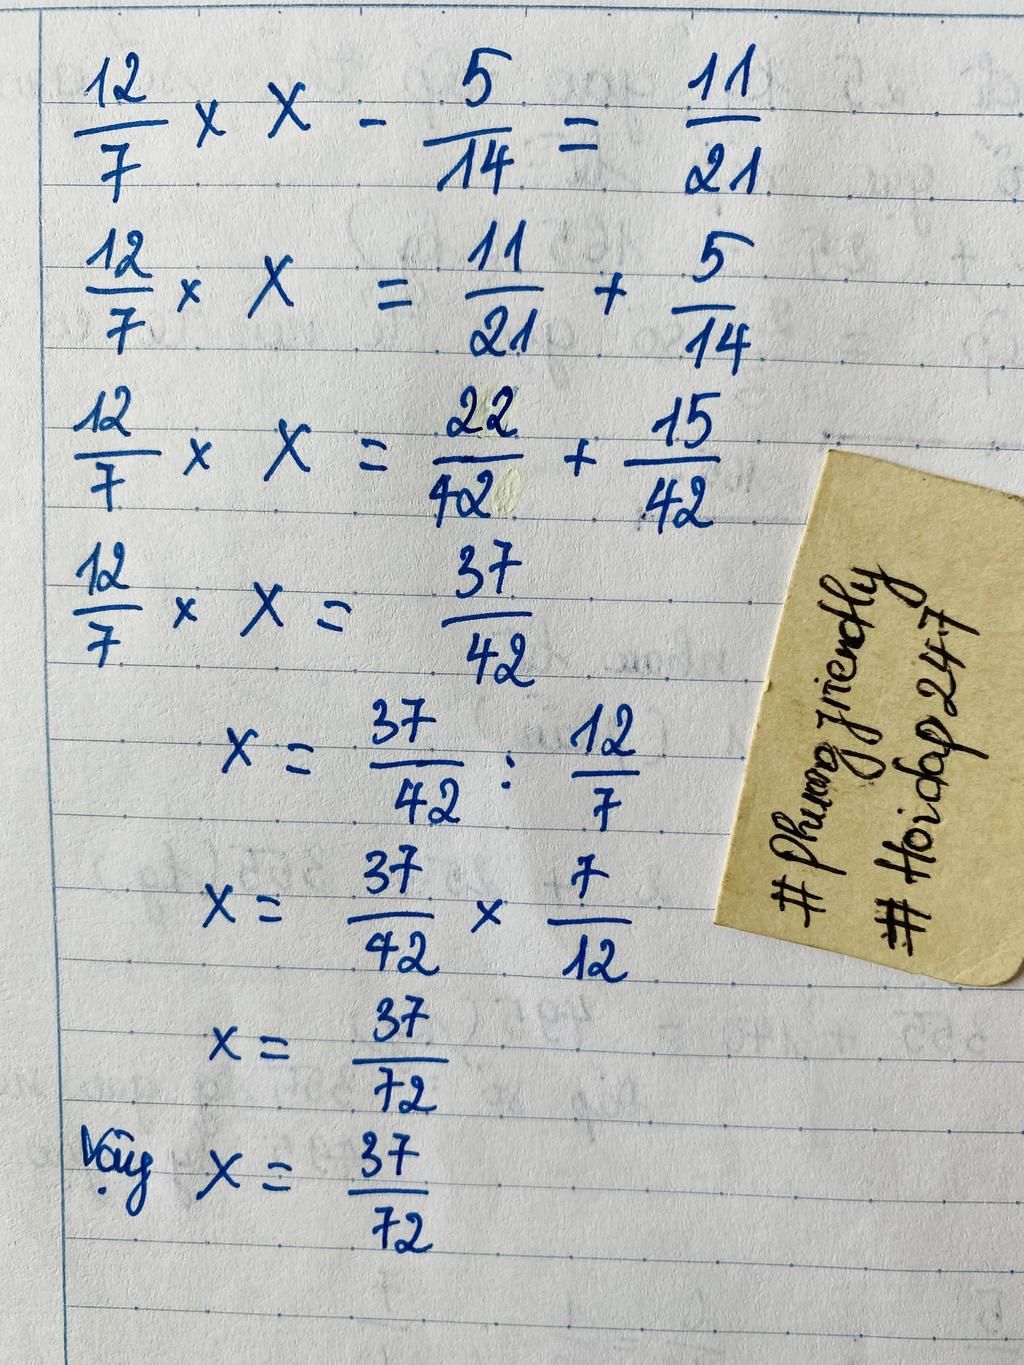 12/7 x X - 5/14 = 11/21
12/7 x X = 11/21 + 5/14
12/7 x X = 22/42 + 15/42
12/7 x X = 37/42
X = 37/42 : 12/7
X = 37/42 x 7/12
X = 37/72
Vậy X = 37/72
# Phuongfriendly
# Hoidap247